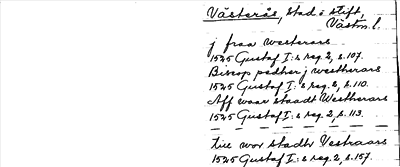 Västerås, stad o stift,
Västm. l.
j fraa westerars
1525 Gustaf I:s reg. 2, s. 107.
Biscop pedher j westherars
1525 Gustaf I:s reg. 2, s. 110.
Aff waar staadt Westherars
1525 Gustaf I:s reg. 2, s. 113.
till vor stadh Vestraars
1525 Gustaf I:s reg. 2, s. 157.